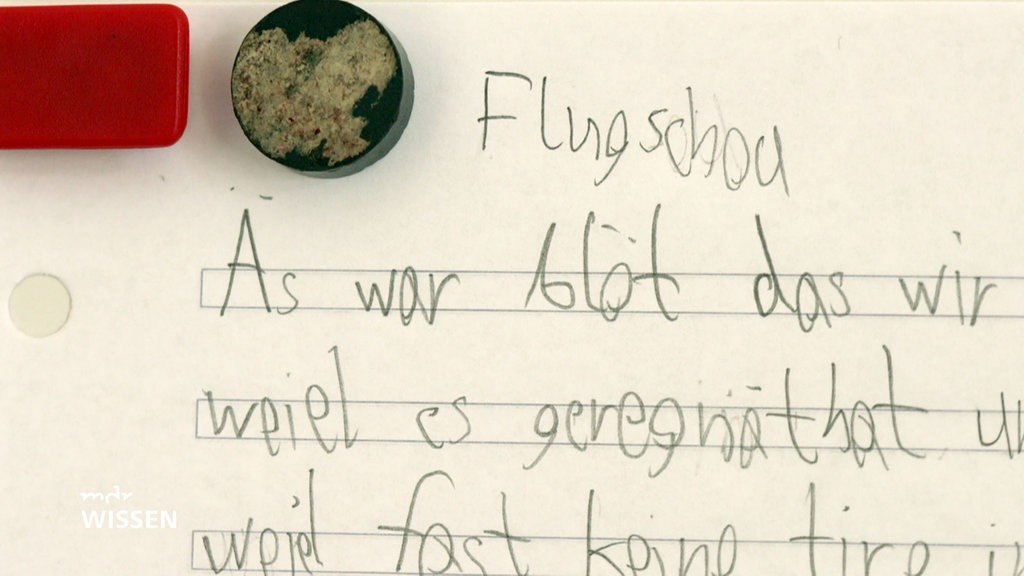 Flugschou
Äs war blöt das wir
weiel es geregnät hat un
weiel fast keine tire in
mdr
WISSEN